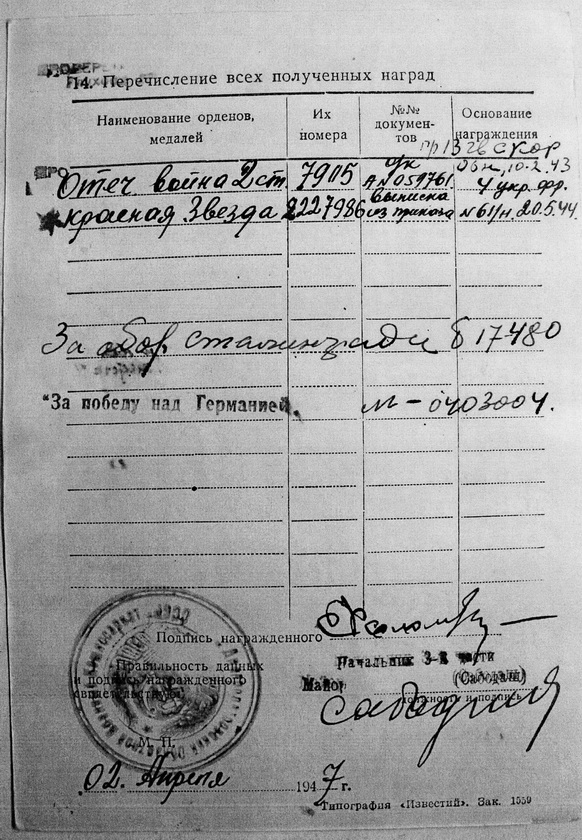 14. Перечисление всех полученных наград
Наименование орденов, медалей
Их номера
№№ документов
Основание награждения
пр 13 гв ск ор
Отеч война 2 ст. 7905 ук А.№059761. 10.2.43
Красная Звезда 2227986 выписка из приказа 4 укр. фр. №61/н. 20.5.44.
За обор сталинграда б 17480
"За победу над Германией. м – 0403004.
Подпись награжденного
Начальник 3-й части
Правильность данных
и подпись награжденного
свидетельствую:
Майор (Сабодаш)
должность и подпись
М. П.
02. Апреля 1947 г.
Типография «Известий». Зак. 1559